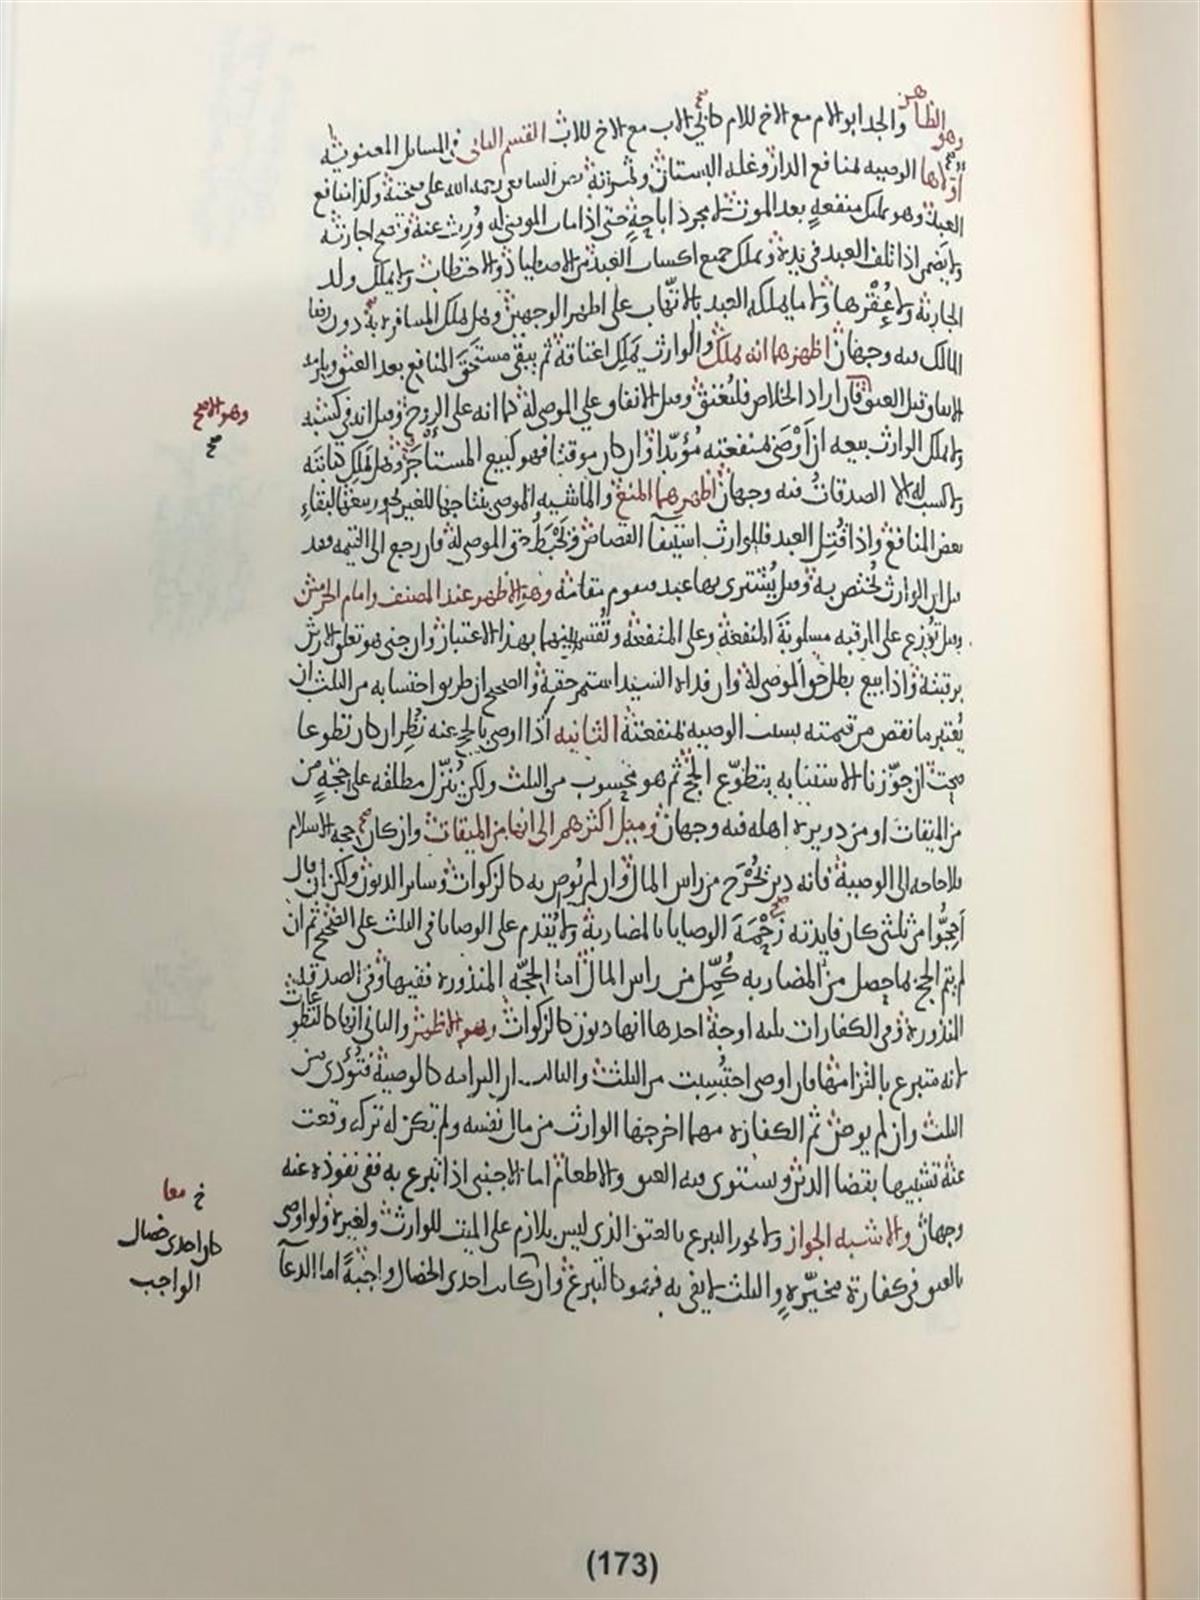 وهو الظاهر والجد ابو الام مع الاخ للام كابي الاب مع الاخ للاب القسم الثاني في المسائل المعنوية
اولاها الوصية بمنافع الدار وغلة البستان وثمرته نص الشافعي رحمه الله على صحته وكذا منافع
العبد وهو تمليك منفعة بعد الموت لا مجرد اباحة حتى اذا مات الموصى له ورث عنه وتصح اجارته
ولا يضمن اذا تلف العبد في يده ويملك جميع اكساب العبد من الاصطياد والاحتطاب ولا يملك ولد
الجارية ولا عقرها ولا ما يملكه العبد بالاتهاب على اظهر الوجهين وهل يملك المسافرة به دون رضا
المالك فيه وجهان اظهرهما انه يملك والوارث يملك اعتاقه ثم يبقى مستحق المنافع بعد العتق ويلزمه
الانفاق قبل العتق فان اراد الخلاص فليعتق وقيل الانفاق على الموصى له كما انه على الزوج وقيل انه في كسبه
ولا يملك الوارث بيعه ان اوصى بمنفعته مؤبدا وان كان موقتا فهو كبيع المستأجر وهل يملك كتابته
ولا كسب له الا الصدقات فيه وجهان اظهرهما المنع والماشية الموصى بنتاجها للغير يجوز بيعها لبقاء
بعض المنافع واذا قتل العبد فللوارث استيفا القصاص ويحبط حق الموصى له فان رجع الى القيمة فقد
قيل ان الوارث يختص به وقيل يشترى بها عبد يقوم مقامه وهو الاظهر عند المصنف وامام الحرمين
وقيل توزع على الرقبة مسلوبة المنفعة وعلى المنفعة وتقسم بينهما بهذا الاعتبار وان جنى هو تعلق الارش
برقبته واذا بيع بطل حق الموصى له وان فداه السيد استمر حقه والصحيح ان طريق احتسابه من الثلث ان
يعتبر ما نقص من قيمته بسبب الوصية بمنفعته الثانية اذا اوصى بالحج عنه نظر ان كان تطوعا
صحت ان جوزنا الاستنابة بتطوع الحج ثم هو محسوب من الثلث ولكن ينزل مطلقه على حجة من
من الميقات او من دويرة اهله فيه وجهان وميل اكثرهم الى انها من الميقات وان كان حجة الاسلام
فلا حاجة الى الوصية فانه دين يخرج من راس المال وان لم يوص به كالزكوات وسائر الديون ولكن ان قال
احجوا من ثلثي كان فايدته زحمة الوصايا بالمضاربة ولا يقدم على الوصايا في الثلث على الصحيح ثم ان
لم يتم الحج بما حصل من المضاربة كمل من راس المال اما الحجة المنذورة ففيها وفي الصدقة
المنذورة وفي الكفارات ثلثة اوجه احدها انها ديون كالزكوات وهو الاظهر والثاني انها كالتطوعات
لانه متبرع بالتزامها فان اوصى احتسبت من الثلث والثالث ان التزامه كالوصية فتؤدى من
الثلث وان لم يوص ثم الكفارة مهما اخرجها الوارث من مال نفسه ولم تكن له تركة وقعت
عنه تشبيها بقضا الدين ويستوى فيه العتق والاطعام اما الاجنبي اذا تبرع به ففي نفوذه عنه
وجهان والاشبه الجواز ولا يجوز التبرع بالعتق الذي ليس بلازم على الميت للوارث ولغيره ولو اوصى
بالعتق في كفارة مخيرة والثلث لا يفي به فهو كالتبرع وان كانت احدى الخصال واجبة اما الدعا
وهو الاصح
صح
خ معا
كان احدى خصال
الواجب
(173)